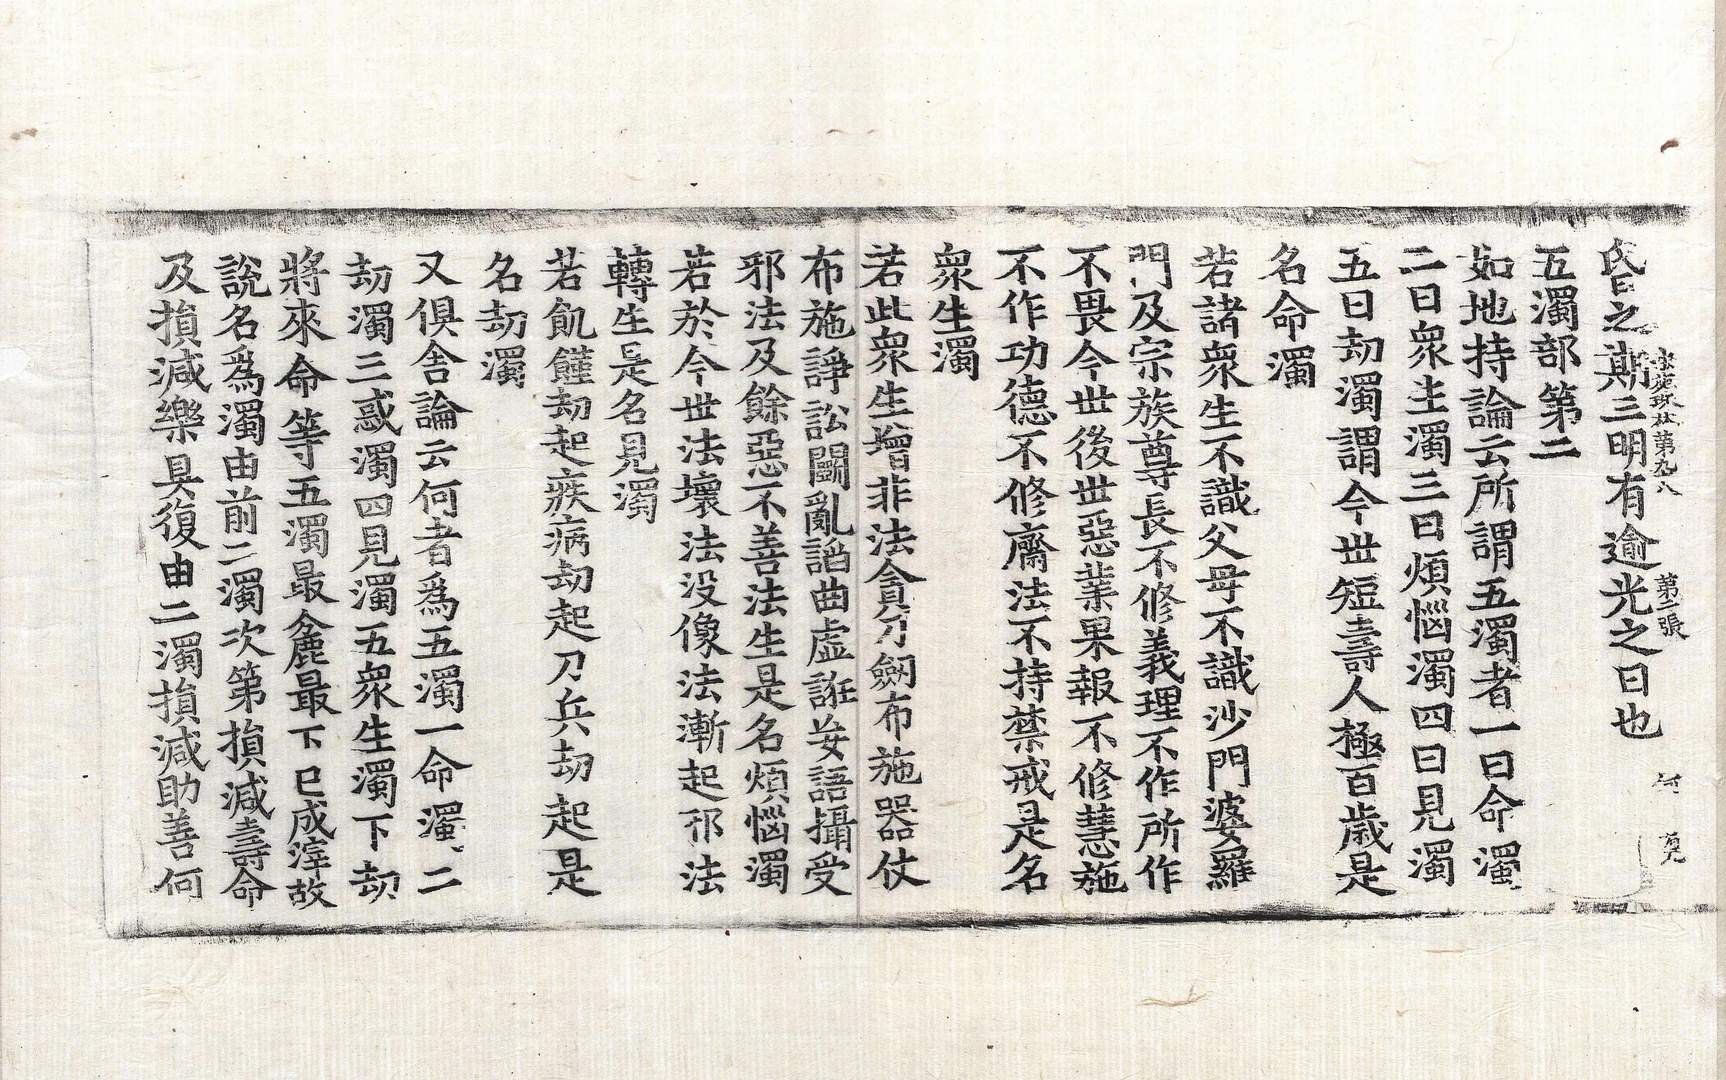 氏昏之期三明有逾光之日也
法苑珠林第九八 第二張 何
五濁部第二
如地持論云所謂五濁者一曰命濁
二曰衆生濁三曰煩惱濁四曰見濁
五曰劫濁謂今世短壽人極百歲是
名命濁
若諸衆生不識父母不識沙門婆羅
門及宗族尊長不修義理不作所作
不畏今世後世惡業果報不修慧施
不作功德不修齋法不持禁戒是名
衆生濁
若此衆生增非法貪刀劒布施器仗
布施諍訟鬭亂諂曲虛誑妄語攝受
邪法及餘惡不善法生是名煩惱濁
若於今世法壞法没像法漸起邪法
轉生是名見濁
若飢饉劫起疾病劫起刀兵劫起是
名劫濁
又俱舍論云何者爲五濁一命濁二
劫濁三惑濁四見濁五衆生濁下劫
將來命等五濁最麁最下已成滓故
說名爲濁由前二濁次第損減壽命
及損減樂具復由二濁損減助善何